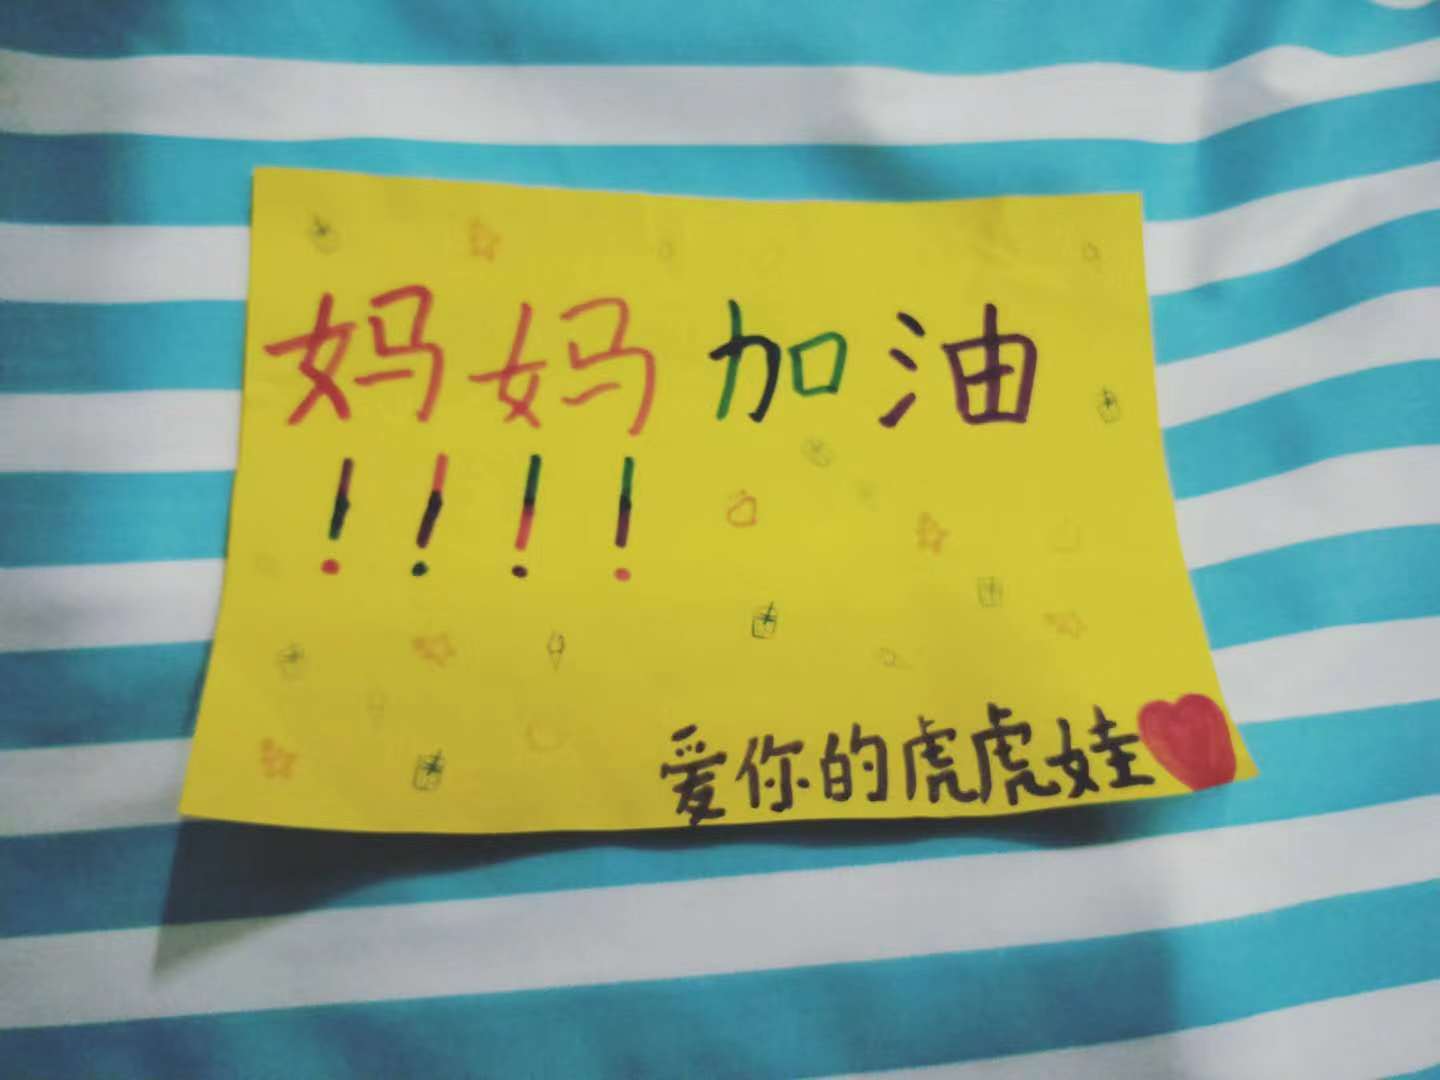 妈妈加油
!!!!
爱你的虎虎娃